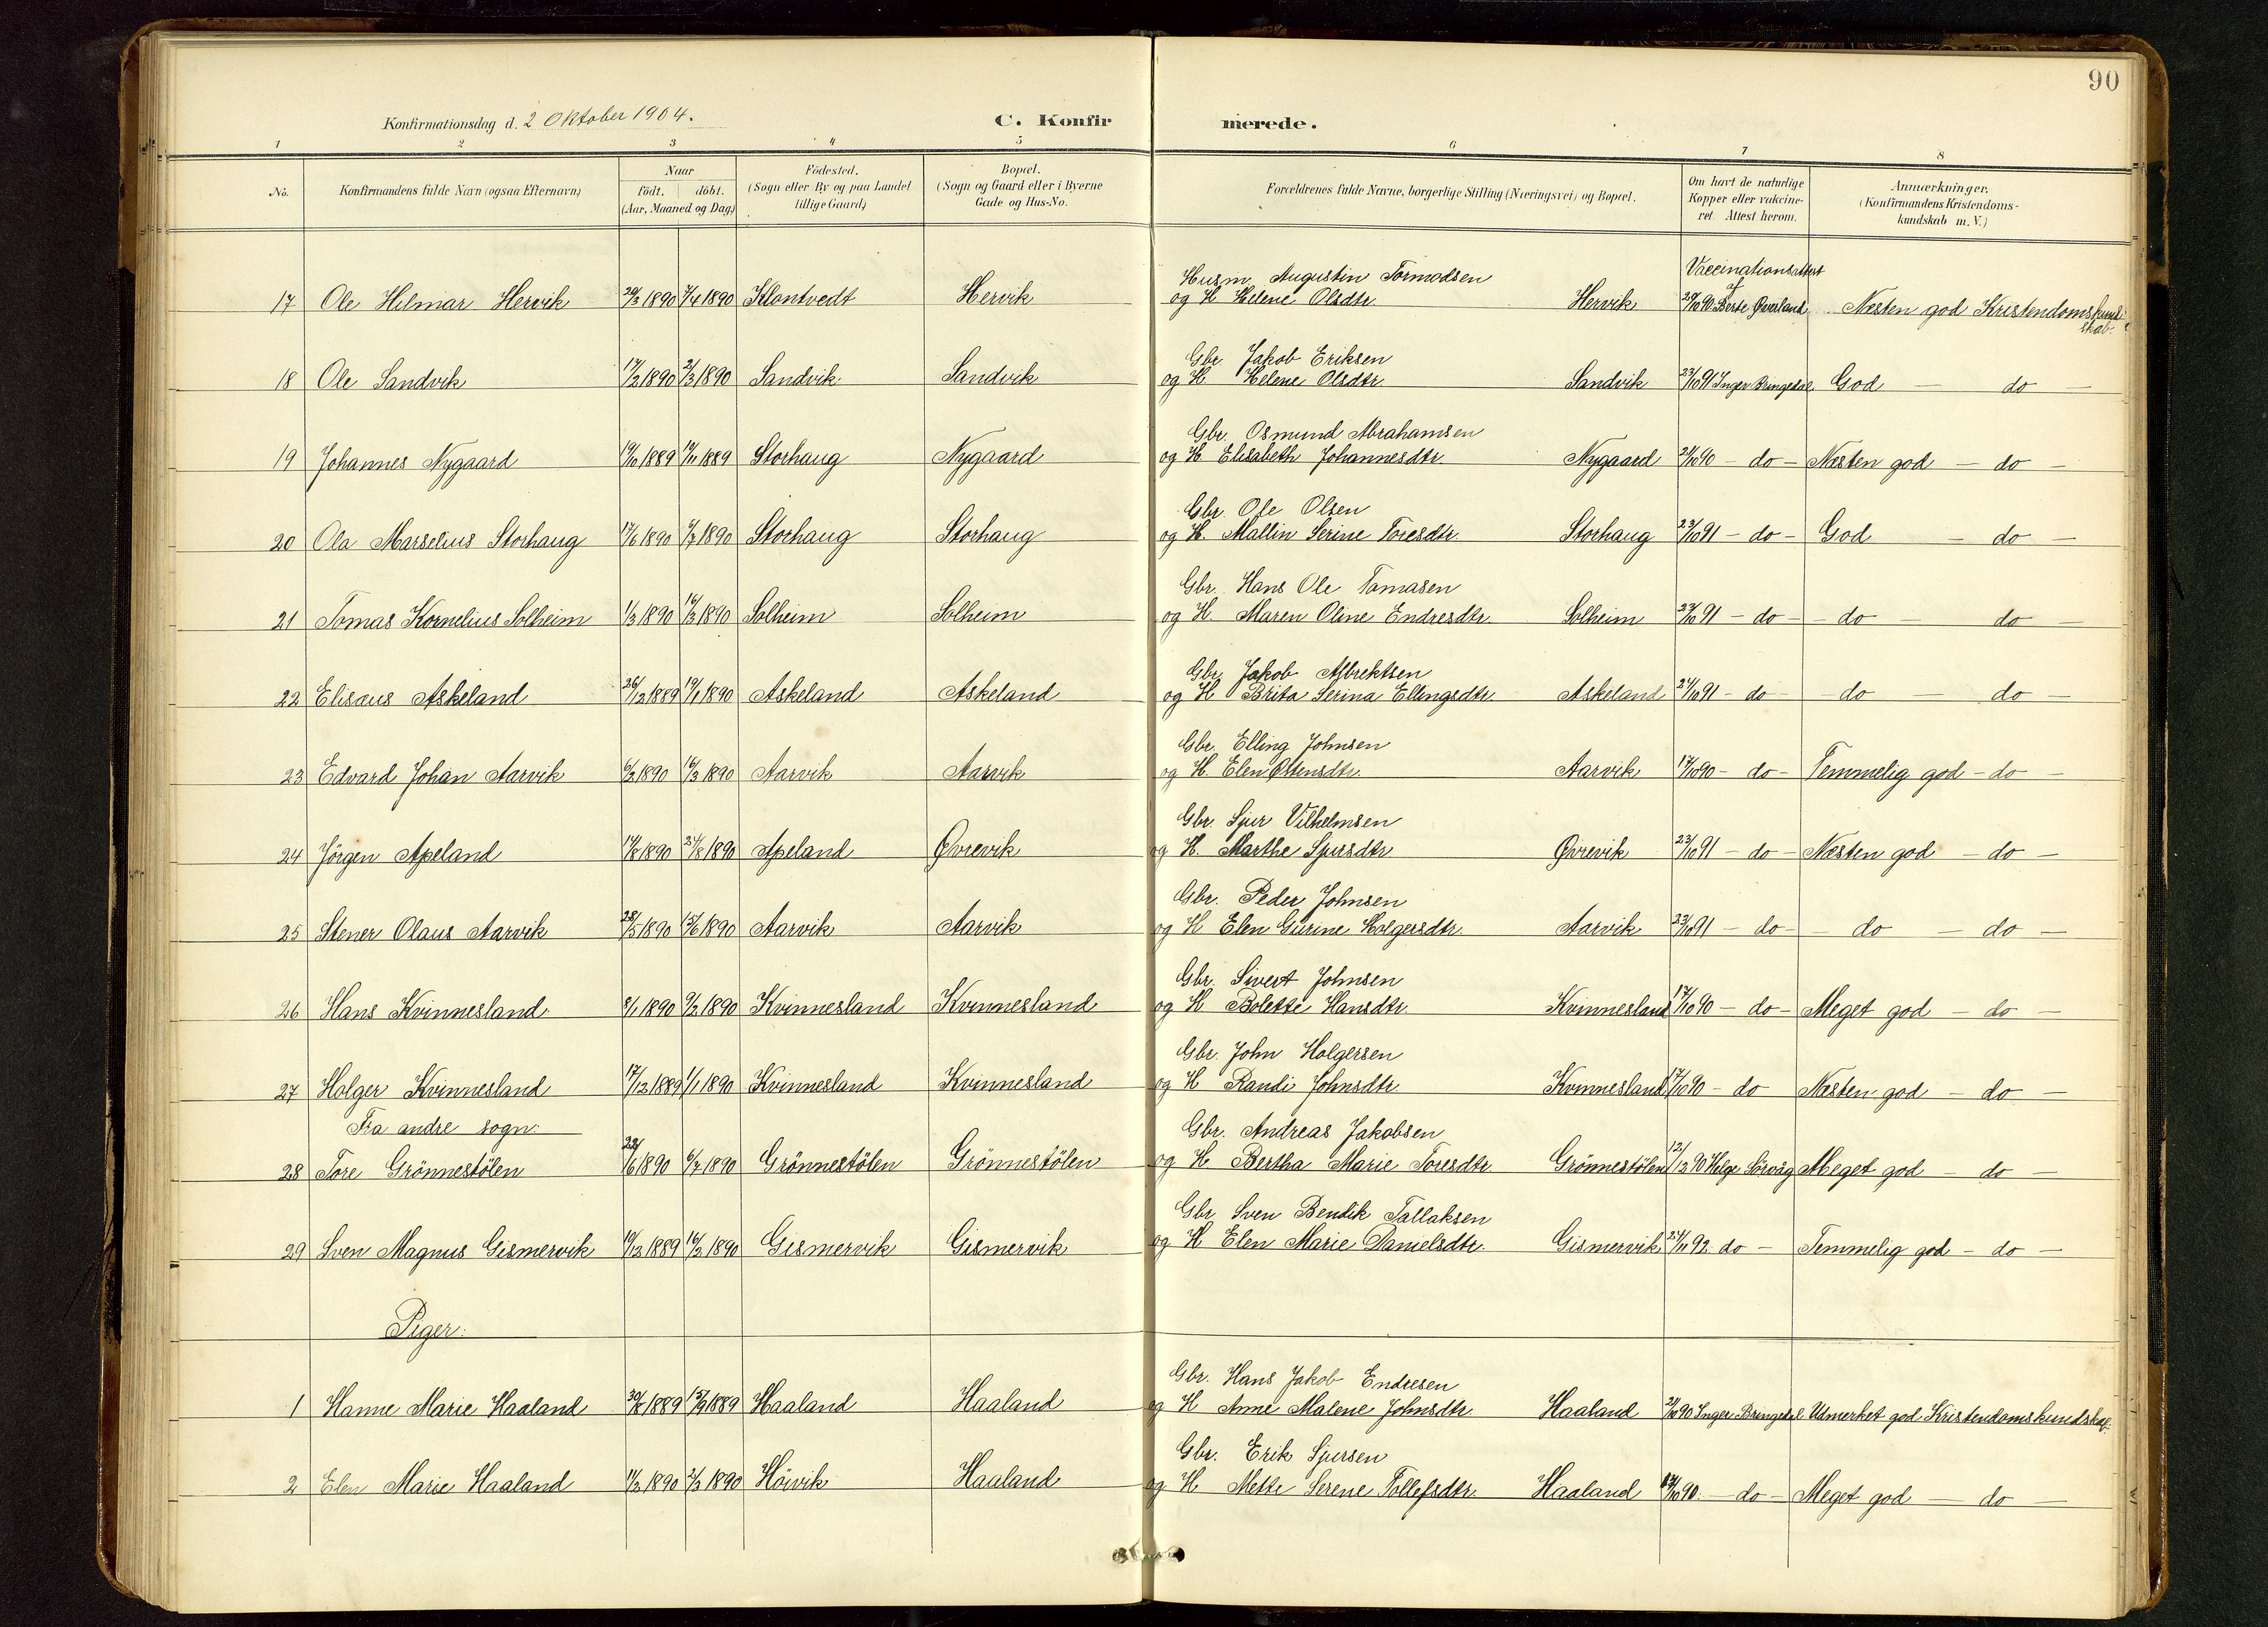 90
Konfirmationsdag d. 2 Oktober 1904.
C. Konfirmerede.
1 2 3 4 5 6 7 8
No.
Konfirmandens fulde Navn (ogsaa Efternavn)
Naar
født. døbt.
(Aar, Maaned og Dag)
Fødested.
(Sogn eller By og paa Landet
tillige Gaard)
Bopæl.
(Sogn og Gaard eller i Byerne
Gade og Hus-No.
Forældrenes fulde Navne, borgerlige Stilling (Næringsvei) og Bopæl.
Om havt de naturlige
Kopper eller vakcine-
ret. Attest herom.
Anmærkninger.
(Konfirmandens Kristendoms-
kundskab m. V.)
Husm. Augustin Tormodsen Vaccinationsattest
17 Ole Hilmar Hervik 29/3 1890 7/4 1890 Klontvedt Hervik og H. Helene Olsdtr. Hervik af Berte Øverland Næsten god Kristendomskund-
skab.
Gbr. Jakob Eriksen
18 Ole Sandvik 17/2 1890 2/3 1890 Sandvik Sandvik og H. Helene Olsdtr. Sandvik 23/10 91 Inger Bringedal God — do —
Gbr. Osmund Abrahamsen
19 Johannes Nygaard 19/10 1889 1889 Storhaug Nygaard og H. Elisabeth Johannesdtr. Nygaard 21/10 90 — do — Næsten god — do —
Gbr. Ole Olsen
20 Ola Marselius Storhaug 17/6 1890 6/7 1890 Storhaug Storhaug og H. Mallin Serine Toresdtr. Storhaug 23/10 91 — do — God — do —
Gbr. Hans Ole Tomasen
21 Tomas Kornelius Solheim 1/3 1890 16/3 1890 Solheim Solheim og H. Maren Oline Endresdtr. Solheim 23/10 91 — do — do — do —
Gbr. Jakob Albrektsen
22 Elisæus Askeland 26/12 1889 19/1 1890 Askeland Askeland og H. Brita Serina Ellingsdtr. Askeland 24/10 91 — do — do — do —
Gbr. Elling Johnsen
23 Edvard Johan Aarvik 6/3 1890 16/3 1890 Aarvik Aarvik og H. Elen Østensdtr. Aarvik 17/10 90 — do — Temmelig god — do —
Gbr. Sjur Vilhelmsen
24 Jörgen Apeland 17/8 1890 31/8 1890 Apeland Øvrevik og H. Marthe Sjursdtr. Øvrevik 23/10 91 — do — Næsten god — do —
Gbr. Peder Johnsen
25 Stener Olaus Aarvik 28/5 1890 15/6 1890 Aarvik Aarvik og H. Elen Gurine Holgersdtr. Aarvik 23/10 91 — do — do — do —
Gbr. Sivert Johnsen
26 Hans Kvinnesland 8/1 1890 9/2 1890 Kvinnesland Kvinnesland og H. Bolette Hansdtr. Kvinnesland 17/10 90 — do — Meget god — do —
Gbr. John Holgersen
27 Holger Kvinnesland 17/12 1889 1/1 1890 Kvinnesland Kvinnesland og H. Randi Johnsdtr. Kvinnesland 17/10 90 — do Næsten god — do —
Fra andre sogn: Gbr. Andreas Jakobsen
28 Tore Grönnestölen 22/6 1890 6/7 1890 Grönnestölen Grönnestölen og H. Bertha Marie Toresdtr. Grönnestölen 12/12 90 Helge Sörvåg Meget god — do —
Gbr Sven Bendik Tallaksen
29 Sven Magnus Gismervik 19/12 1889 16/2 1890 Gismervik Gismervik og H. Elen Marie Danielsdtr. Gismervik 24/11 92 do — Temmelig god — do —
Piger:
Gbr. Hans Jakob Endresen
1 Hanne Marie Haaland 30/8 1889 15/9 1889 Haaland Haaland og H. Anne Malene Johnsdtr. Haaland 21/10 90 Inger Bringedal Udmerket god Kristendomskundskap.
Gbr. Erik Sjursen
2 Elen Marie Haaland 11/2 1890 2/3 1890 Höivik Haaland og H. Mette Serene Tollefsdtr. Haaland 17/10 90. — do — Meget god — do —